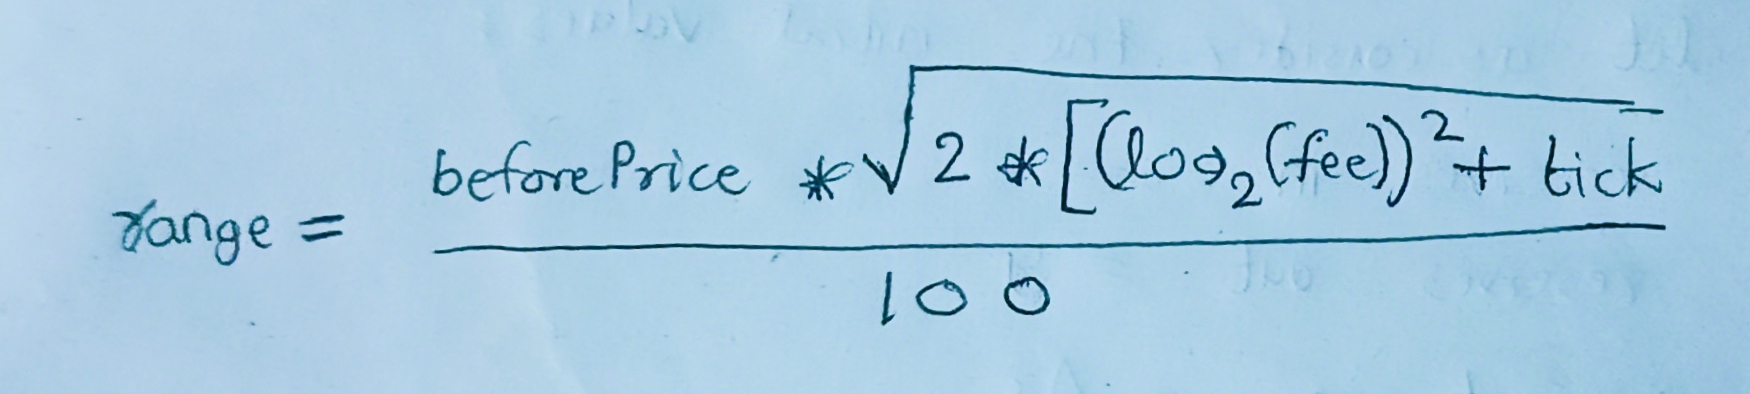 range = beforePrice * √2 * [(log₂(fee))² + tick
100